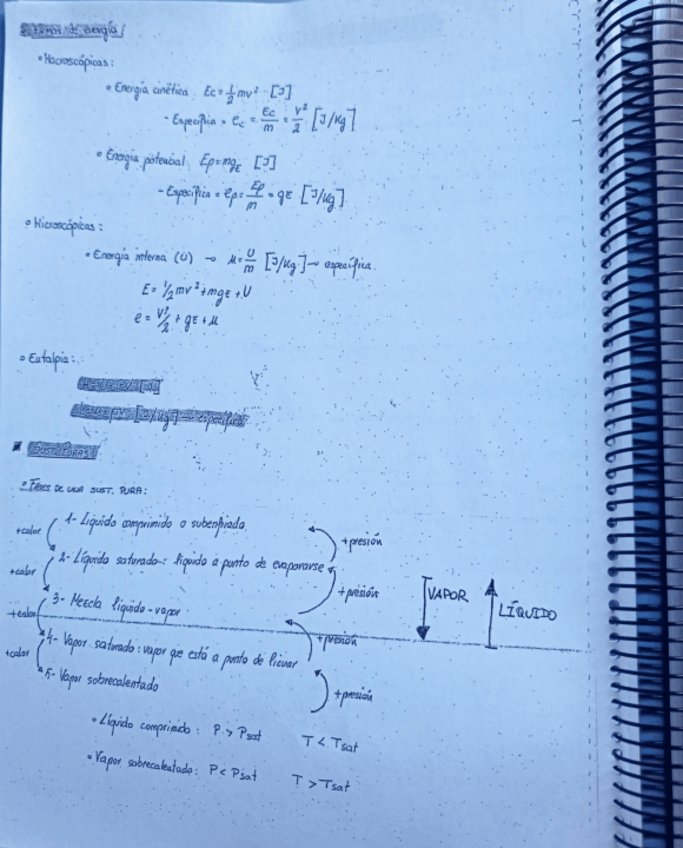 Formas de energía
• Macroscópicas:
• Energía cinética Ec = 1/2 mv² [J]
- Específica = ec = Ec/m = v²/2 [J/Kg]
• Energía potencial Ep = mgz [J]
- Específica = ep = Ep/m = gz [J/Kg]
• Microscópicas:
• Energía interna (U) → u = U/m [J/Kg] → específica.
E = 1/2 mv² + mgz + U
e = v²/2 + gz + u
• Entalpía:
→ específica
• FASES DE UNA SUST. PURA:
1- Líquido comprimido o subenfriado
+calor
+presión
2- Líquido saturado: líquido a punto de evaporarse
+calor
+presión
3- Mezcla líquido-vapor
+calor
+presión
4- Vapor saturado: vapor que está a punto de licuar
+calor
+presión
5- Vapor sobrecalentado
VAPOR
LÍQUIDO
• Líquido comprimido: P > Psat T < Tsat
• Vapor sobrecalentado: P < Psat T > Tsat